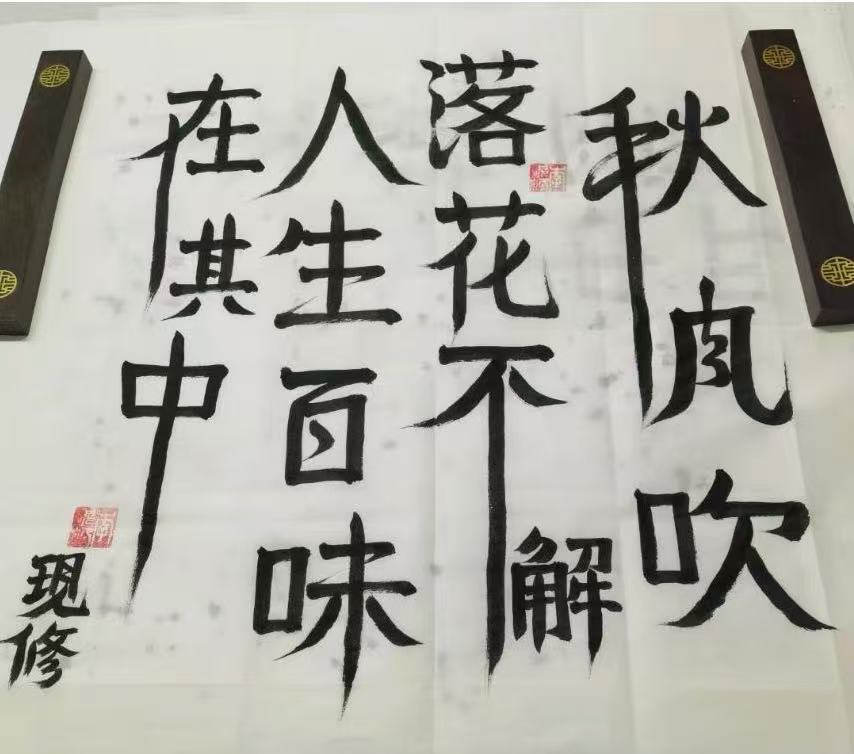 秋风吹
落花不解
人生百味
在其中
现修